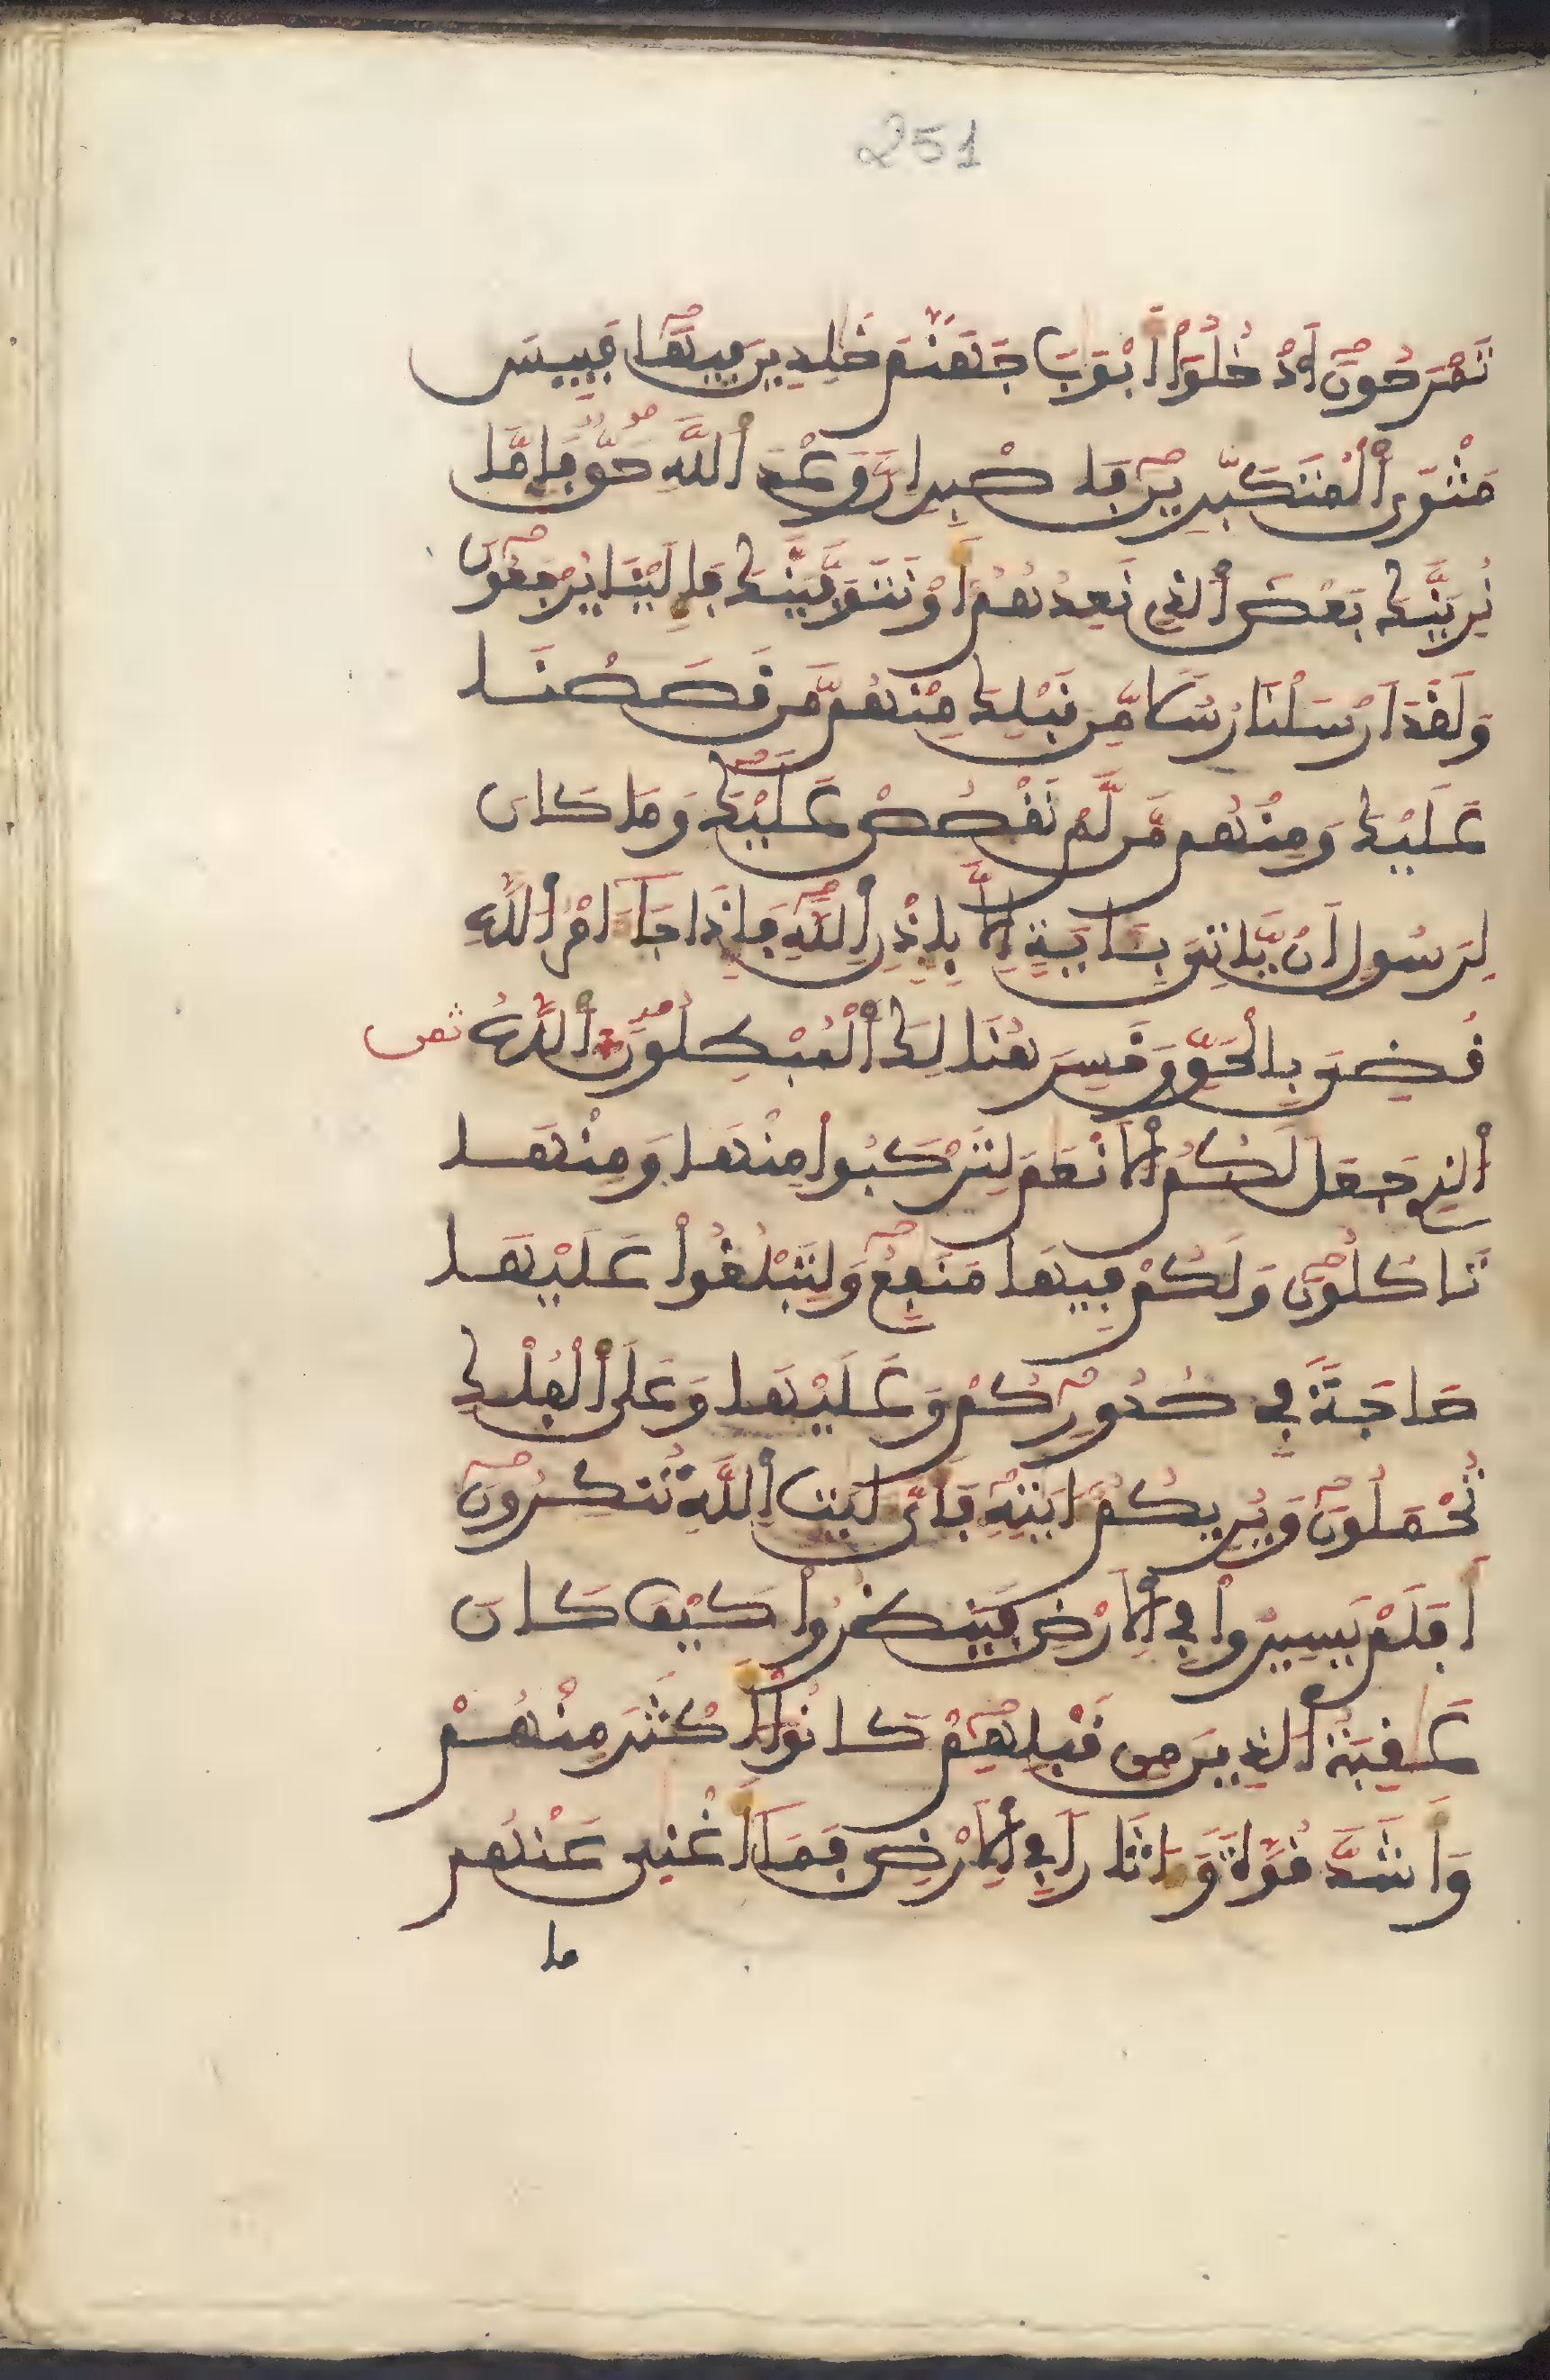 251
تَمْرَحُونَ اَدْخُلُوٓاْ أَبْوَٰبَ جَهَنَّمَ خَٰلِدِينَ فِيهَا فَبِيسَ
مَثْوَى اَلْمُتَكَبِّرِينَ فَاصْبِرِ انَّ وَعْدَ اَللَّهِ حَقٌّ فَإِمَّا
نُرِيَنَّكَ بَعْضَ اَلذِى نَعِدُهُمُۥٓ أَوْ نَتَوَفَّيَنَّكَ فَإِلَيْنَا يُرْجَعُونَ
وَلَقَدَ ارْسَلْنَا رُسُلًا مِّن قَبْلِكَ مِنْهُم مَّن قَصَصْنَا
عَلَيْكَ وَمِنْهُم مَّن لَّمْ نَقْصُصْ عَلَيْكَ وَمَا كَانَ
لِرَسُولٍ اَنْ يَّاتِىَ بِـَٔايَةٍ اِلَّا بِإِذْنِ اِللَّهِ فَإِذَا جَآءَ امْرُ اُللَّهِ
قُضِىَ بِالْحَقِّ وَخَسِرَ هُنَالِكَ اَلْمُبْطِلُونَ اَللَّهُ
ثمن
اُلذِى جَعَلَ لَكُمُ اُلَانْعَٰمَ لِتَرْكَبُواْ مِنْهَا وَمِنْهَا
تَاكُلُونَ وَلَكُمْ فِيهَا مَنَٰفِعُ وَلِتَبْلُغُواْ عَلَيْهَا
حَاجَةً فِى صُدُورِكُمْ وَعَلَيْهَا وَعَلَى اَلْفُلْكِ
تُحْمَلُونَ وَيُرِيكُمُۥٓ ءَايَٰتِهِۦ فَأَىَّ ءَايَٰتِ اِللَّهِ تُنكِرُونَ
أَفَلَمْ يَسِيرُواْ فِى اِلَارْضِ فَيَنظُرُواْ كَيْفَ كَانَ
عَٰقِبَةُ اُلذِينَ مِن قَبْلِهِمْ كَانُوٓاْ أَكْثَرَ مِنْهُمْ
وَأَشَدَّ قُوَّةً وَءَاثَارًا فِى اِلَارْضِ فَمَآ أَغْنِىٰ عَنْهُم
ما